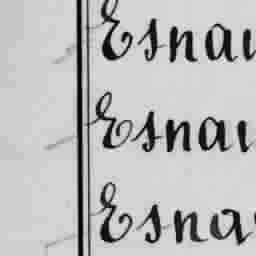 Esnau
Esnau
Esna